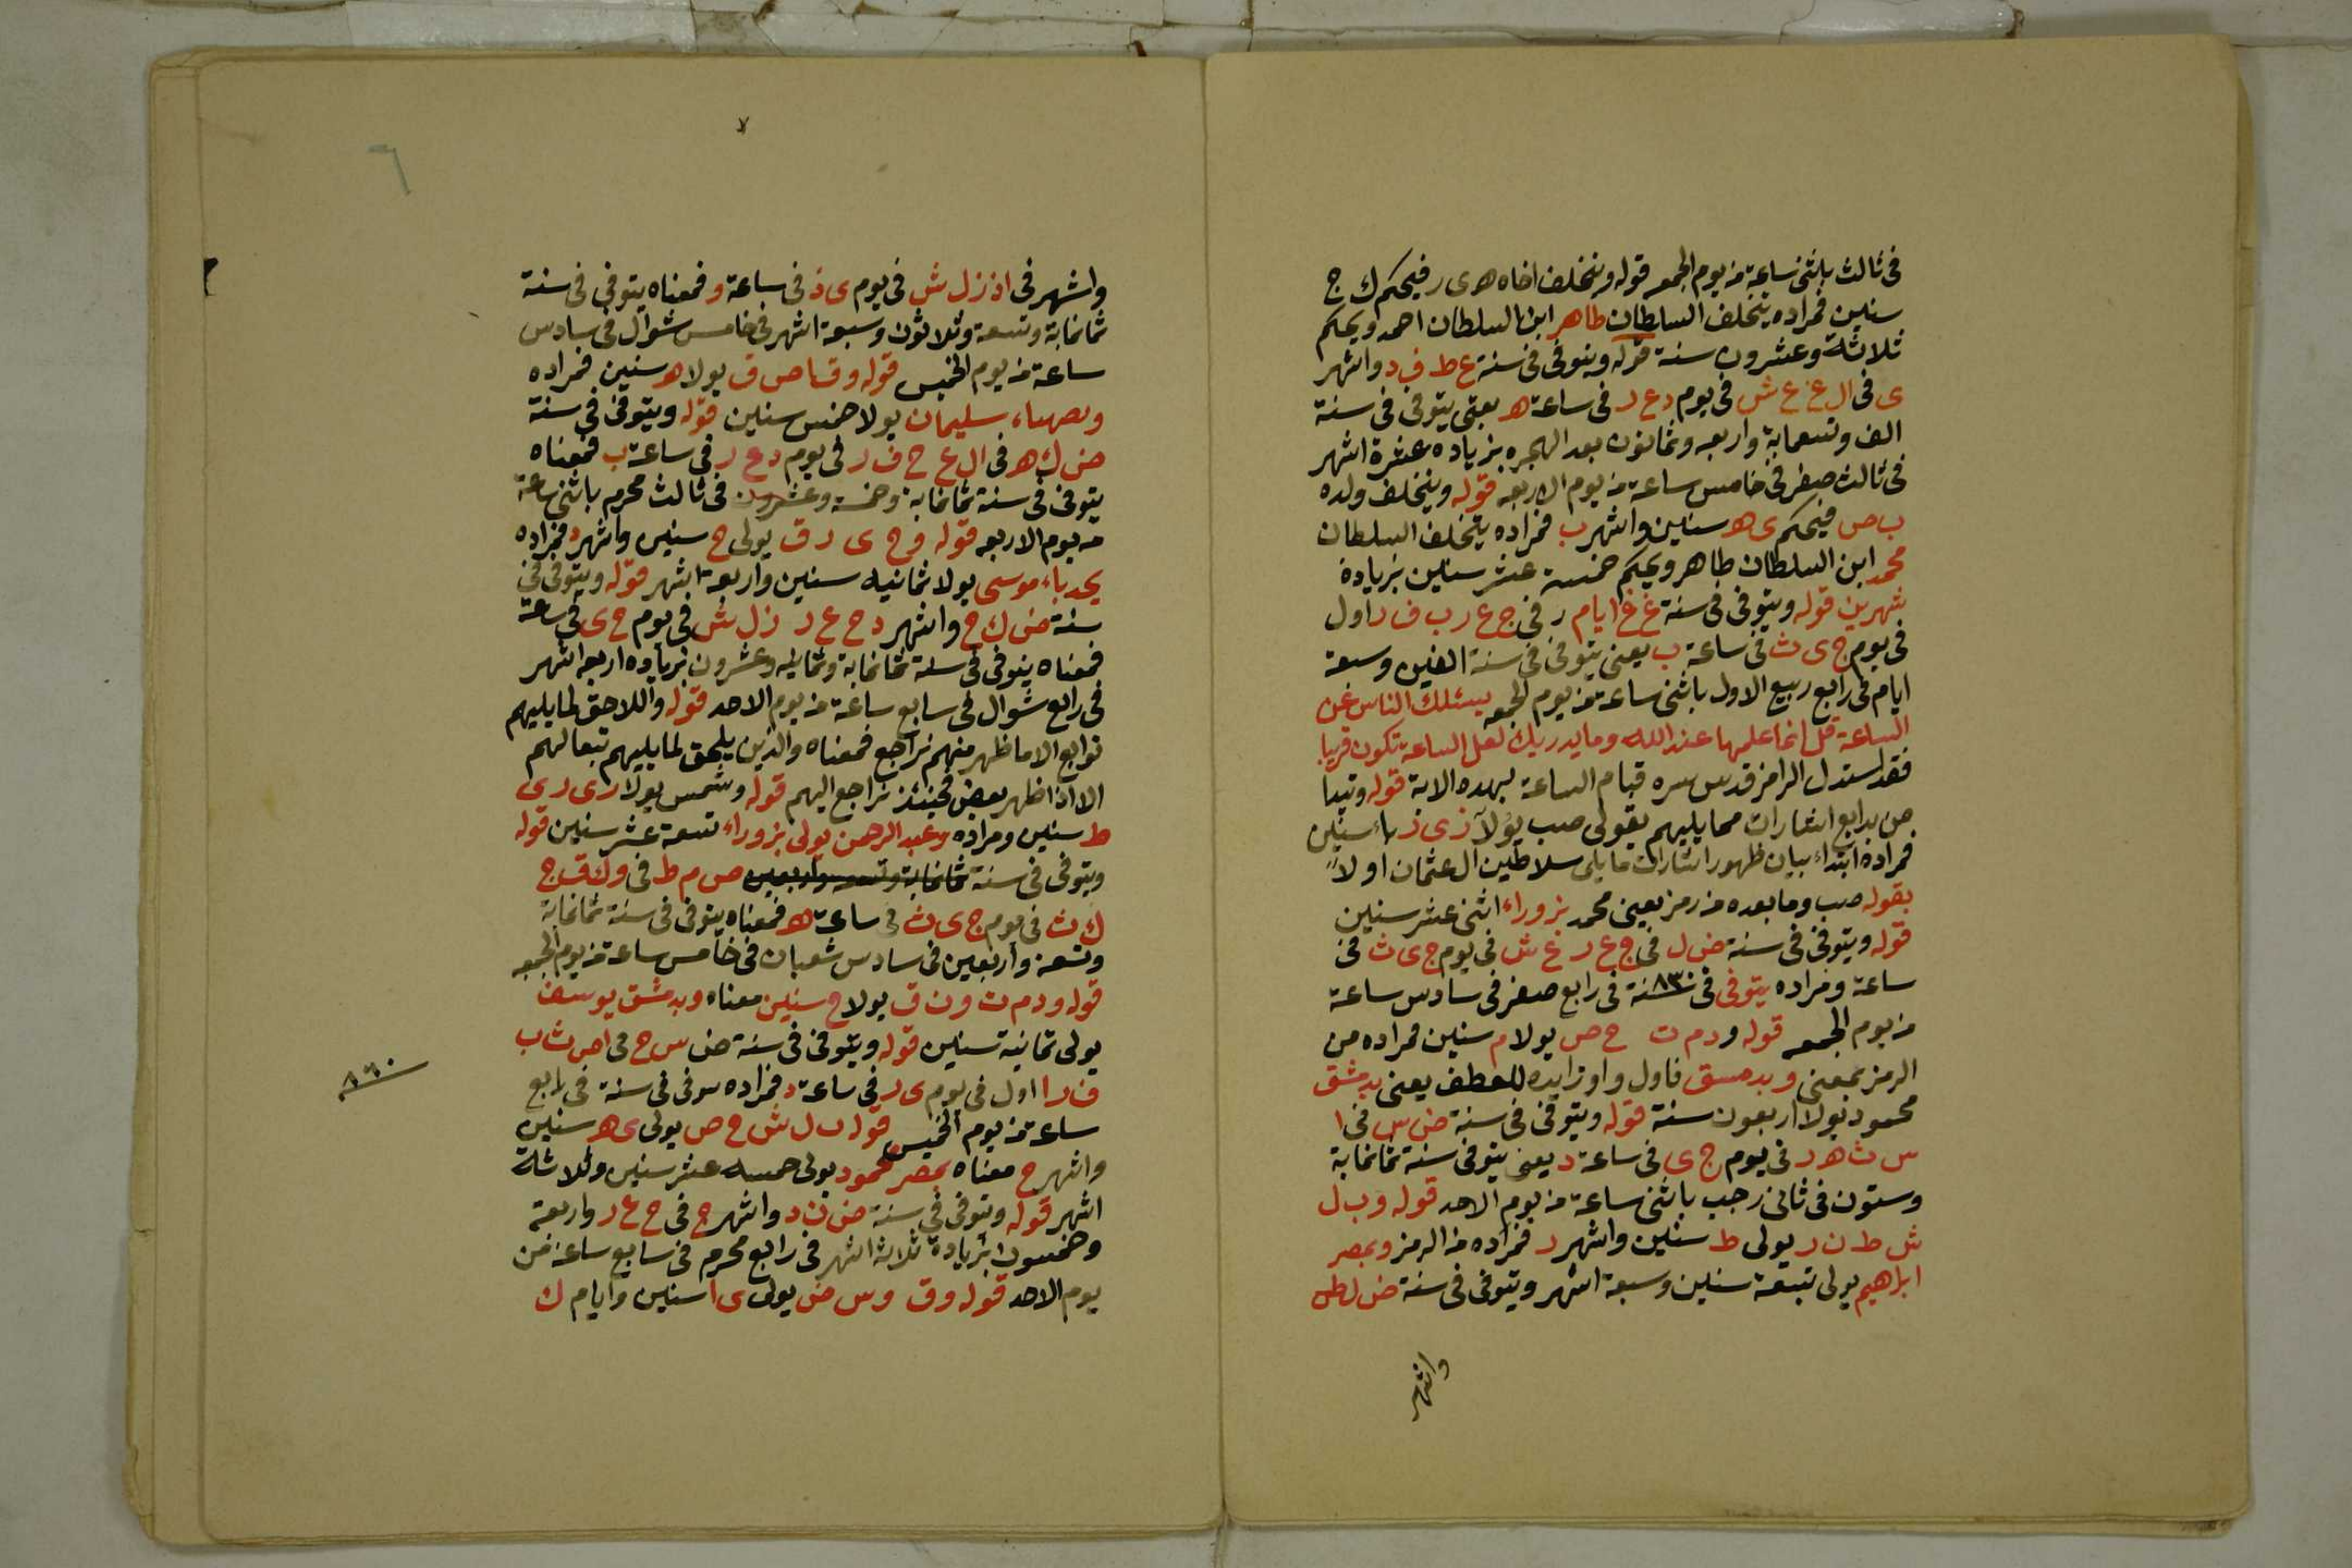 فى ثالث باثنى ساعة من يوم الجمعه قوله ويتخلف اخاه هـ ى ر فيحكم ك ج
سنين فمراده يتخلف السلطان طاهر ابن السلطان احمد ويحكم
ثلاثة وعشرون سنة قوله ويتوفى فى سنة غ ظ ف د واشهر
ى فى ال ع غ ش فى يوم د ع ر فى ساعة هـ يعنى يتوفى فى سنة
الف وتسعماية واربعه وثمانون بعد الهجره بزياده عشرة اشهر
فى ثالث صفر فى خامس ساعة من يوم الاربعه قوله ويتخلف ولده
ب ص فيحكم ى هـ سنين واشهر ب فمراده يتخلف السلطان
محمد ابن السلطان طاهر ويحكم خمسة عشر سنين بزيادة
شهرين قوله ويتوفى فى سنة غ غ ايام ر فى ج ع ر ب ف ر اول
فى يوم ج ى ث فى ساعة ب يعنى يتوفى فى سنة الفين وسبعة
ايام فى رابع ربيع الاول باثنى ساعة من يوم الجمعه يسئلك الناس عن
الساعة قل انما علمها عند الله وما يدريك لعل الساعة تكون قريبا
فقد استدل الرامز قدس سره قيام الساعة بهده الاية قوله وتبدا
من بدايع اشارات مما يليهم بقولى صب يولا ز ى ز باء سنين
فمراده ابتداء بيان ظهور اشارات ما يلى سلاطين ال عثمان اولاً
بقوله صب وما بعده من رمز يعنى محمد بزوراء اثنى عشر سنين
قوله ويتوفى فى سنة ض ل فى ج ع ر غ ش فى يوم ج ى ث فى
ساعة ومراده يتوفى فى ٨٣٠ سنة فى رابع صفر فى سادس ساعة
من يوم الجمعه قوله و د م ت ح ص يولا م سنين فمراده من
الرمز بمعنى وبدمسق فاول واو زايده للعطف يعنى بدمشق
محمود يولا اربعون سنة قوله ويتوفى فى سنة ض س فى ا
س ث هـ ر فى يوم ج ى فى ساعة د يعنى يتوفى سنة ثمانماية
وستون فى ثانى رجب باثنى ساعة من يوم الاحد قوله و ب ل
ش ط ن ر يولى ط سنين واشهر ر فمراده من الرمز وبمصر
ابراهيم يولى تسعة سنين وسبعة اشهر ويتوفى فى سنة ض ل ط
واشهر
واشهر فى اذ ز ل ش فى يوم ى ذ فى ساعة و فمعناه يتوفى فى سنة
ثمانماية وتسعة وثلاثون وسبعة اشهر فى خامس شوال فى سادس
ساعة من يوم الخميس قوله و ق با ص ف يولا هـ سنين فمراده
وبصهباء سليمان يولا خمس سنين قوله ويتوفى فى سنة
ض ك هـ فى ال ع ح ف ر فى يوم د ع ر فى ساعة ب فمعناه
يتوفى فى سنة ثمانماية وخمسة وعشرون فى ثالث محرم باثنى ساعة
من يوم الاربعه قوله و ح ى د ق يولى ح سنين واشهر د فمراده
بحدباء موسى يولا ثمانيه سنين واربعة اشهر قوله ويتوفى فى
سنة ض ك ح واشهر د ح ع ر ز ل ش فى يوم ح ى فى ساعة
فمعناه يتوفى فى سنة ثمانماية وثمانيه وعشرون بزياده اربعه اشهر
فى رابع شوال فى سابع ساعة من يوم الاحد قوله واللاحق لما يليهم
توابع الا ما ظهر منهم تراجع فمعناه والذين يلحق لما يليهم تبعا لهم
الا اذا ظهر بعض فحينئذ تراجع اليهم قوله وشمس يولا ر ى ر ى
ط سنين ومراده وعبد الرحمن يولى بزوراء تسعة عشر سنين قوله
ويتوفى فى سنة ثمانماية وتسعه واربعين ص م ط فى و ك ق ج
ك ث فى يوم ج ى ث فى ساعة هـ فمعناه يتوفى فى سنة ثمانماية
وتسعة واربعين فى سادس شعبان فى خامس ساعة من يوم الجمعه
قوله و د م ت و ن ق يولا ح سنين معناه وبدمشق يوسف
يولى ثمانية سنين قوله ويتوفى فى سنة ض س ح فى ا ص ث ب
ف ر ا اول فى يوم ى ر فى ساعة د فمراده يتوفى فى سنة فى رابع
٨٦٠
ساعة من يوم الخميس قوله ب ل ش ح ص يولى ى هـ سنين
واشهر ح معناه بمصر محمود يولى خمسه عشر سنين وثلاثة
اشهر قوله ويتوفى فى سنة ض ن د واشهر ج فى ح ع ر واربعة
وخمسون بزيادة ثلاثة اشهر فى رابع محرم فى سابع ساعة من
يوم الاحد قوله و ق و س ض يولى ى ا سنين وايام ك